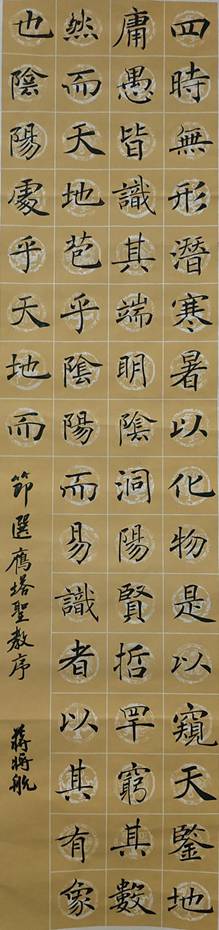 四時無形潛寒暑以化物是以窺天鑒地
庸愚皆識其端明陰洞陽賢哲罕窮其數
然而天地苞乎陰陽而易識者以其有象
也陰陽處乎天地而
節選雁塔聖教序
蔣將航